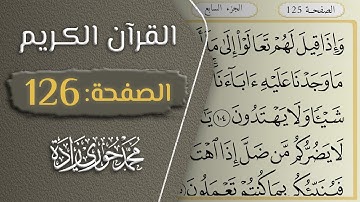 القرآن الكريم
الصفحة: 126
محمد خوري زاده
الصفحة 125
الجزء السابع
وَإِذَا قِيلَ لَهُمْ تَعَالَوْا۟ إِلَىٰ مَآ أَ
مَا وَجَدْنَا عَلَيْهِ ءَابَآءَنَآ
شَيْـًٔا وَلَا يَهْتَدُونَ ١٠٤ يَٰٓ
لَا يَضُرُّكُم مَّن ضَلَّ إِذَا ٱهْتَ
فَيُنَبِّئُكُم بِمَا كُنتُمْ تَعْمَلُونَ